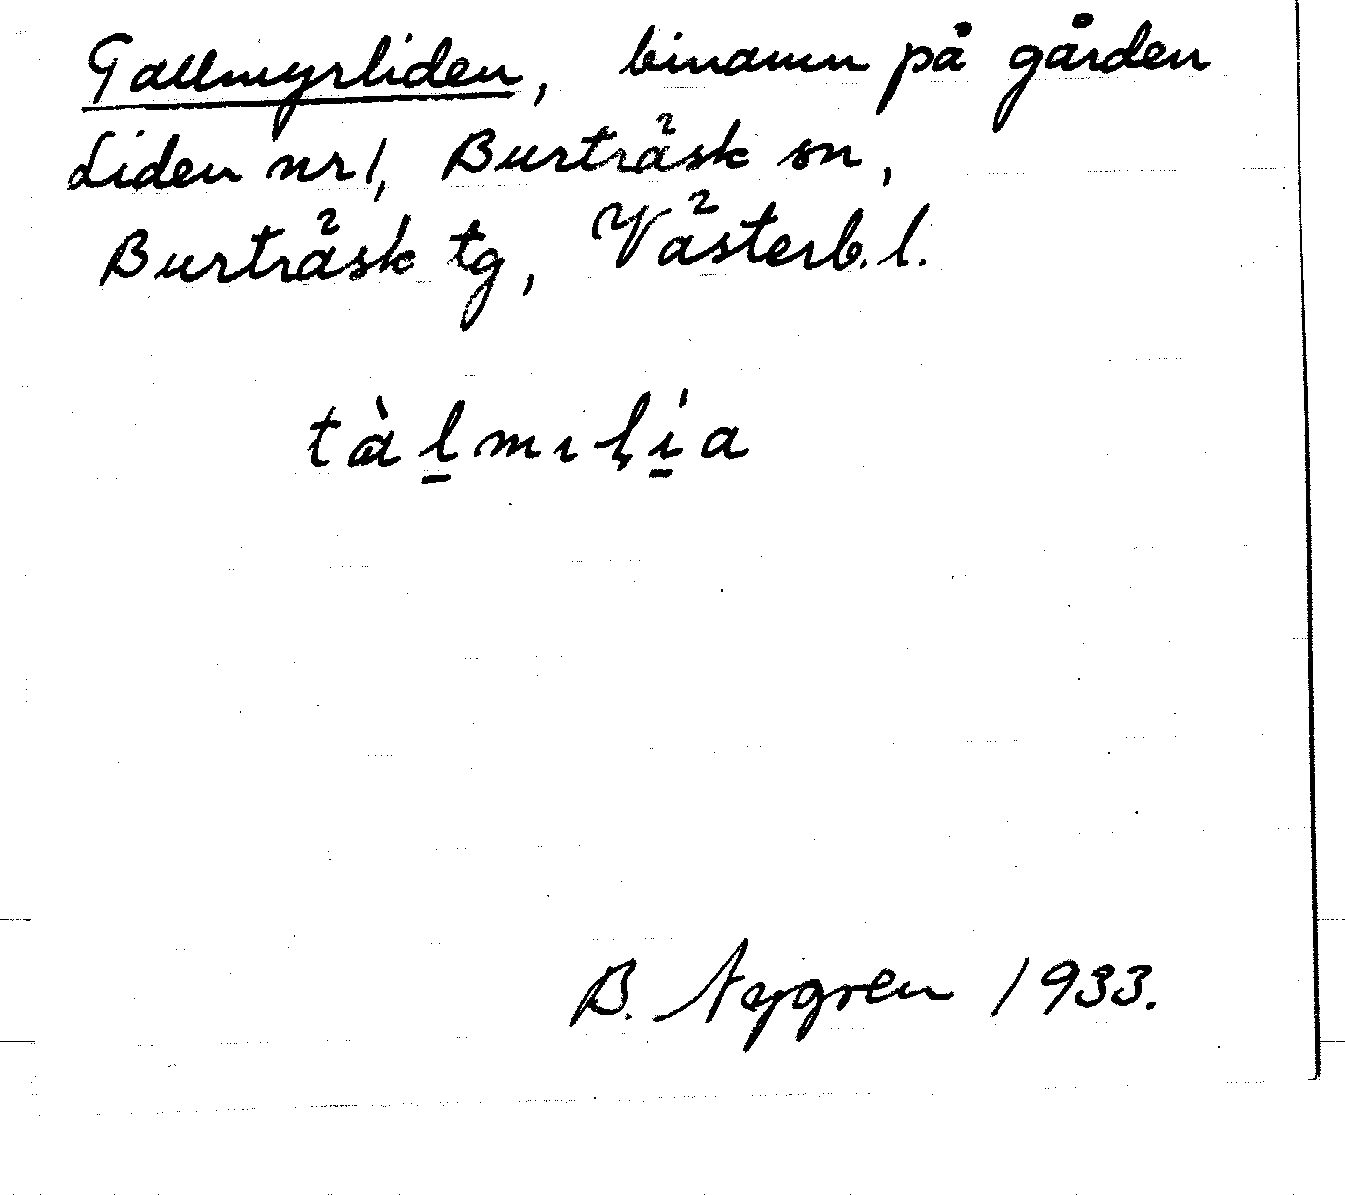 Tallmyrliden, binamn på gården
Liden nr 1, Burträsk sn,
Burträsk tg, Västerb. l.
tàl̲mıļí̲a
B. Nygren 1933.